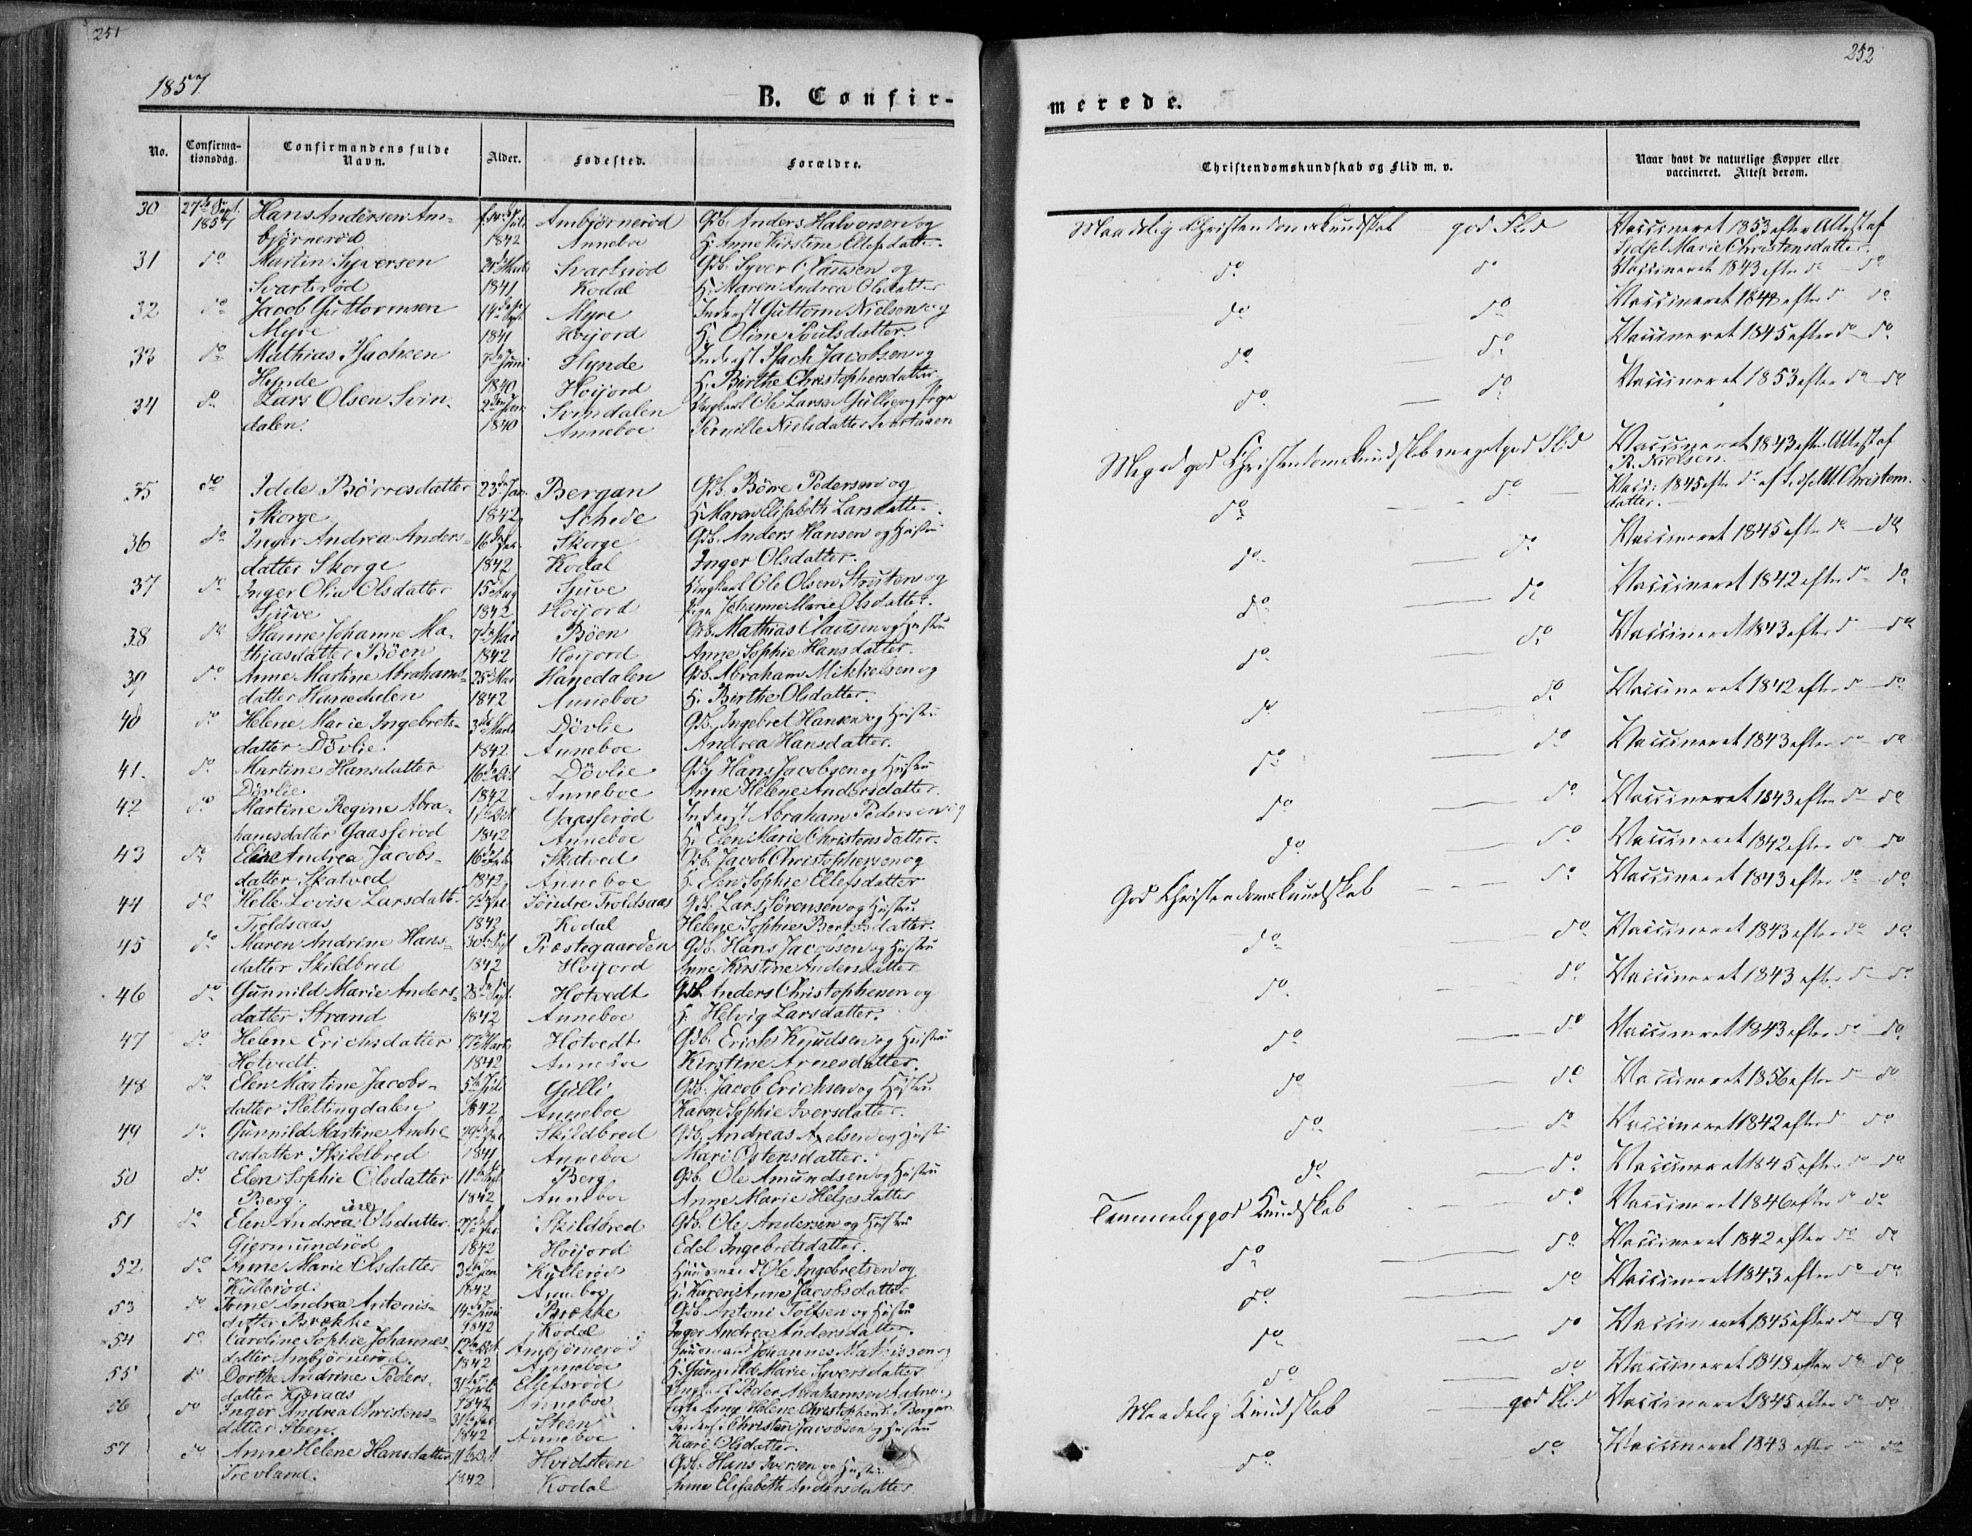 251
1857
B. Confir-
No.
Confirma-
tionsdag.
Confirmandens fulde
Navn.
Alder.
Fødested.
Forældre.
30 27de Sept. Hans Andersen Am- 14de Juli Ambjørnerød Gdb. Anders Halvorsen og
1857 bjørnerød 1842 Anneboe H. Anne Kirstine Ellefsdatter
31 do Martin Syversen Marts Svartsrød Gdb. Syver Clausen og
Svartsrød 1841 Kodal H. Maren Andrea Olsdatter
32 do Jacob Guttormsen 14de Sept Myre Inderst Guttorm Nielsen og
Myre 1841 Høijord H. Oline Poulsdatter
33 do Mathias Isachsen 7de Juni Hynde Inderst Isach Jacobsen og
Hynde 1840 Høijord H. Birthe Christophersdatter
34 do Lars Olsen Svin- 2den Svindalen Ungkarl Ole Larsen Gullie og Pige
dalen. 1840 Anneboe Pernille Nielsdatter
35 do Idde Børresdatter 23de Jan. Bergan Gdb. Børre Pedersen og
Skorge 1842 Schede H. Maren Elisabeth Larsdatter
36 do Inger Andrea Anders- 16de Skorge Gdb. Anders Hansen og Hustru
datter Skorge 1842 Kodal Inger Olsdatter.
37 do Inger Olia Olsdatter 15de Aug Sjuve Ungkarl Ole Olsen og
Sjuve 1842 Høijord Pige Johanne Marie Olsdatter.
38 do Hanne Johanne Ma- 7de Bøen Gdb. Mathias Clausen og Hustru
thiasdatter Bøen 1842 Høijord Anne Sophie Hansdatter.
39 do Anne Martine Abrahams- 25de Hanedalen Gdb. Abraham Mikkelsen og
datter Hanedalen 1842 Anneboe H. Birthe Olsdatter.
40 do Helene Marie Ingebrets- 3de Marts Døvlie Gdb. Ingebret Hansen og Hustru
datter Døvlie. 1842 Anneboe Andrea Hansdatter.
41. do Martine Hansdatter 16de Oct Døvlie Gdb. Hans Jacobsen og Hustru
Døvlie. 1842 Anneboe Anne Helene Andersdatter.
42 do Martine Regine Abra- Oct Gaasserød Inderst Abraham Pedersen og
hamsdatter Gaasserød 1842 Anneboe H. Elen Marie Christensdatter.
43 do Andrea Jacobs- 16de Feb Skatved Gdb. Jacob Christophersen og
datter Skatved 1842 Anneboe H. Elen Sophie Ellefsdatter
44 do Helle Lovise Larsdatt. 7de Søndre Troldsaas Gdb. Lars Sørensen og Hustru
Troldsaas 1842 Kodal Helene Sophie
45 do Maren Andrine Hans- 30de Sept Præstegaarden Gdb. Hans Jacobsen og Hustru
datter Skildbred 1842 Høijord Anne Kirstine Andersdatter
46 do Gunnild Marie Anders- 28de Sept. Hotvedt Gdb. Anders Christophersen og
datter Strand 1842 Anneboe H. Helvig Larsdatter.
47 do Helene Erichsdatter 17de Marts Hotvedt Gdb. Erich Knudsen og Hustru
Hotvedt 1842 Anneboe Kirstine Arnesdatter.
48 do Elen Martine Jacobs- 5te Juli Gulli Gdb. Jacob Erichsen og Hustru
datter Slettingdalen 1842 Anneboe Karen Sophie Iversdatter.
49 do Gunnild Martine Andre- 29de Skildbred Gdb. Andreas Axelsen og Hustru
asdatter Skildbred 1841 Anneboe Mari Ostensdatter.
50 do Elen Sophie Olsdatter 11te Sept Berg Gdb. Ole Amundsen og Hustru
Berg. 1842 Anneboe Anne Marie Helgesdatter
51 do Elen Andrea Olsdatter 27de Skildbred Gdb. Ole Andersen og Hustru
Gjermundrød 1842 Høijord Edel Ingebretsdatter.
52 do Anne Marie Olsdatter 3de Jan Kullerød Huusmand Ole Ingebretsen og
Kullerød. 1842 Anneboe H. Karen Anne Jacobsdatter
53 do Andrea Antonis- 14de Juni Brekke Gdb. Antoni Tolfsen og Hustru
datter Brekke 1842 Kodal Inger Andrea Andersdatter.
54 do Caroline Sophie Johannes- 12te Oct. Ambjørnerød Huusmand Johannes Mathissen og
datter Ambjørnerød. 1842 Anneboe H. Gunnild Marie Syversdatter
55 do Dorthe Andrine Peders- 31te Juli Ellefsrød Peder Abrahamsen
datter Kjæraas 1842 Anneboe Helene Christophersd. Bergan
56 do Inger Andrea Christens- 31te Steen Inderst Christen Jacobsen og Hustru
datter Steen. 1842 Anneboe Kari Olsdatter.
57 do Anne Helene Hansdatter 11te Oct Hvidsteen Gdb. Hans Iversen og Hustru
Trevland. 1842 Kodal Anne Elisabeth Andersdatter
252
merede.
Christendomskundskab og Flid m. v.
Naar havt de naturlige Kopper eller
vaccineret. Attest derom.
Maadelig Christendomskundskab god Flid Vaccineret 1853 efter Attest af
Sidsel Marie Christensdatter.
do do Vaccineret 1843 efter do do
do do Vaccineret efter do do
do do Vaccineret 1845 efter do do
do do Vaccineret 1853 efter do do
Meget god Christendomskundskab meget god Flid Vaccineret 1843 efter Attest af
R. Nielsen.
do do Vacc: 1845 efter do af Sidsel M Christens-
datter.
do do Vaccineret 1845 efter do do
do do Vaccineret 1842 efter do do
do do Vaccineret 1843 efter do do
do do Vaccineret 1842 efter do do
do do Vaccineret 1843 efter do do
do do Vaccineret 1843 efter do do
do do Vaccineret 1842 efter do do
God Christendomskundskab do Vaccineret 1843 efter do do
do do Vaccineret 1843 efter do do
do do Vaccineret 1843 efter do do
do do Vaccineret 1843 efter do do
do do Vaccineret 1856 efter do do
do do Vaccineret 1842 efter do do
do do Vaccineret 1845 efter do do
Temmelig god Kundskab do Vaccineret 1846 efter do do
do do Vaccineret 1842 efter do do
do do Vaccineret 1843 efter do do
do do Vaccineret 1845 efter do do
do do Vaccineret 1848 efter do do
Maadelig Kundskab god Flid Vaccineret 1845 efter do do
do do Vaccineret 1843 efter do do